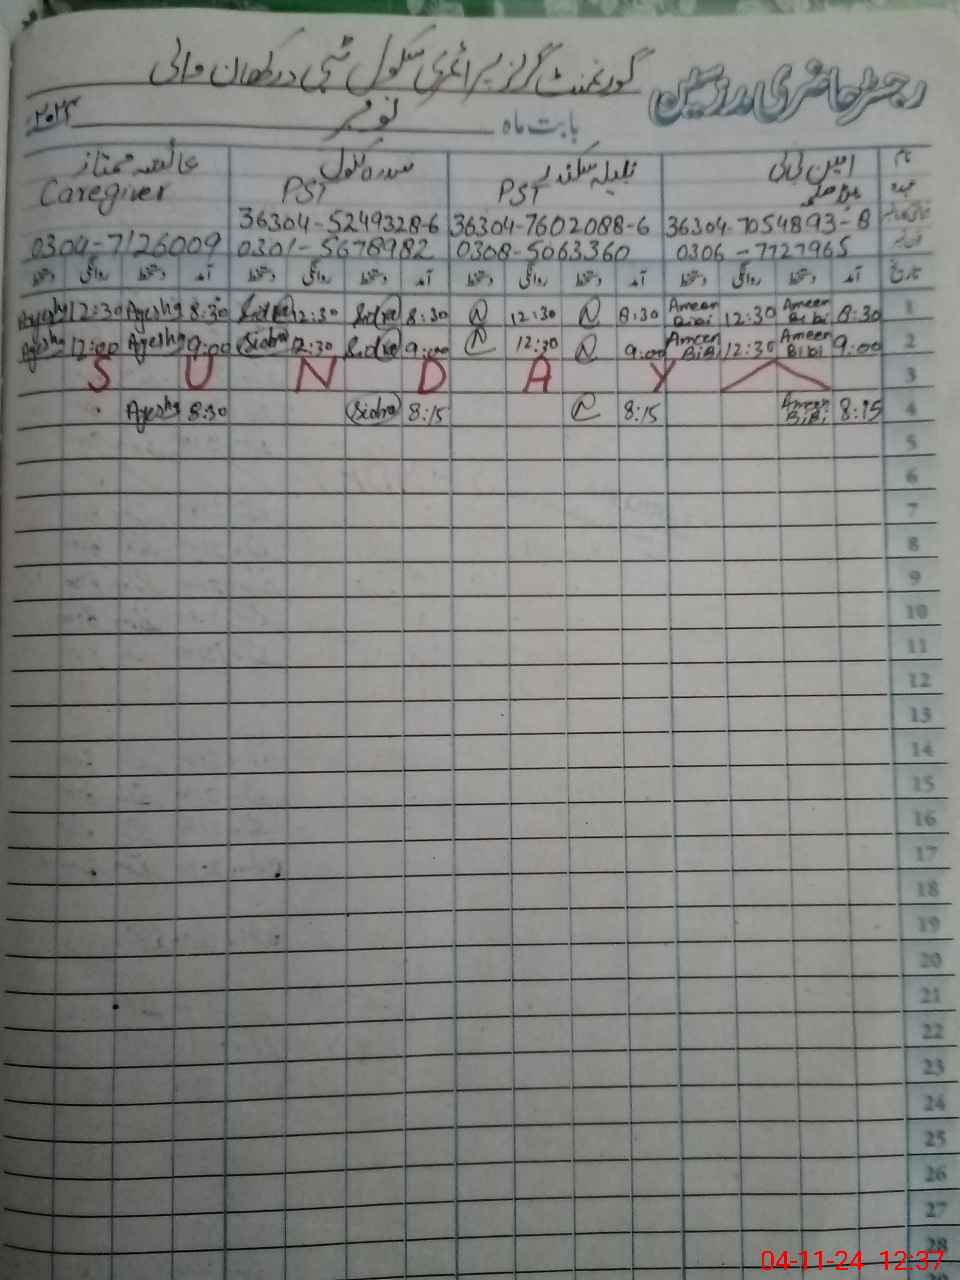 رجسٹر حاضری مدرسین گورنمنٹ گرلز پرائمری سکول ٹبی درکھان والی
بابت ماہ نومبر ۲۰۲۴
نام امین بی بی نبیلہ سکندر سدرہ بتول عائشہ ممتاز
عہدہ PST PST Caregiver
36304-7054893-8 36304-7602088-6 36304-5249328-6
0306-7727965 0308-5063360 0301-5678982 0304-7126009
تاریخ آمد دستخط روانگی دستخط آمد دستخط روانگی دستخط آمد دستخط روانگی دستخط آمد دستخط روانگی دستخط
1 8:30 Ameen Bibi 12:30 Ameen Bibi 8:30 N 12:30 N 8:30 Sidra 12:30 Sidra 8:30 Ayesha 12:30 Ayesha
2 9:00 Ameen Bibi 12:30 Ameen BiBi 9:00 N 12:30 N 9:00 Sidra 12:30 Sidra 9:00 Ayesha 12:00 Ayesha
3 SUNDAY
4 8:15 Ameen BiBi 8:15 N 8:15 Sidra 8:30 Ayesha
5
6
7
8
9
10
11
12
13
14
15
16
17
18
19
20
21
22
23
24
25
26
27
28
04-11-24 12:37